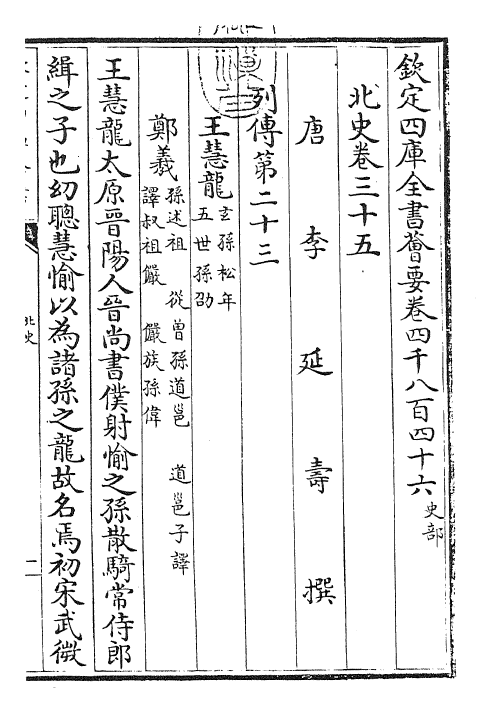 欽定四庫全書薈要卷四千八百四十六 史部
北史卷三十五
唐 李 延 壽 撰
列傳第二十三
王慧龍 玄孫松年
五世孫劭
鄭羲 孫述祖 從曾孫道邕 道邕子譯
譯叔祖儼 儼族孫偉
王慧龍太原晉陽人晉尚書僕射愉之孫散騎常侍郎
緝之子也幼聰慧愉以為諸孫之龍故名焉初宋武微
北史